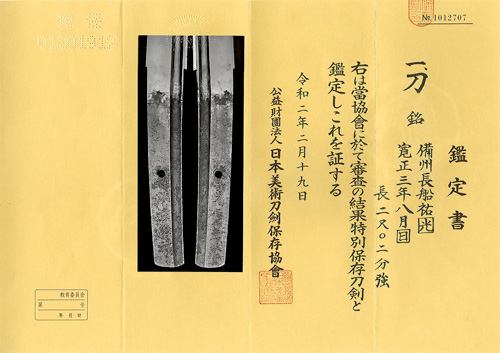 鑑定書
一、刀 銘 備州長船祐光
寛正三年八月日
長二尺〇二分強
右は當協會に於て審査の結果特別保存刀剣と
鑑定しこれを証する
令和二年二月十九日
公益財團法人 日本美術刀劍保存協會
№ 1012707
教育委員会
第 号
年 月 日